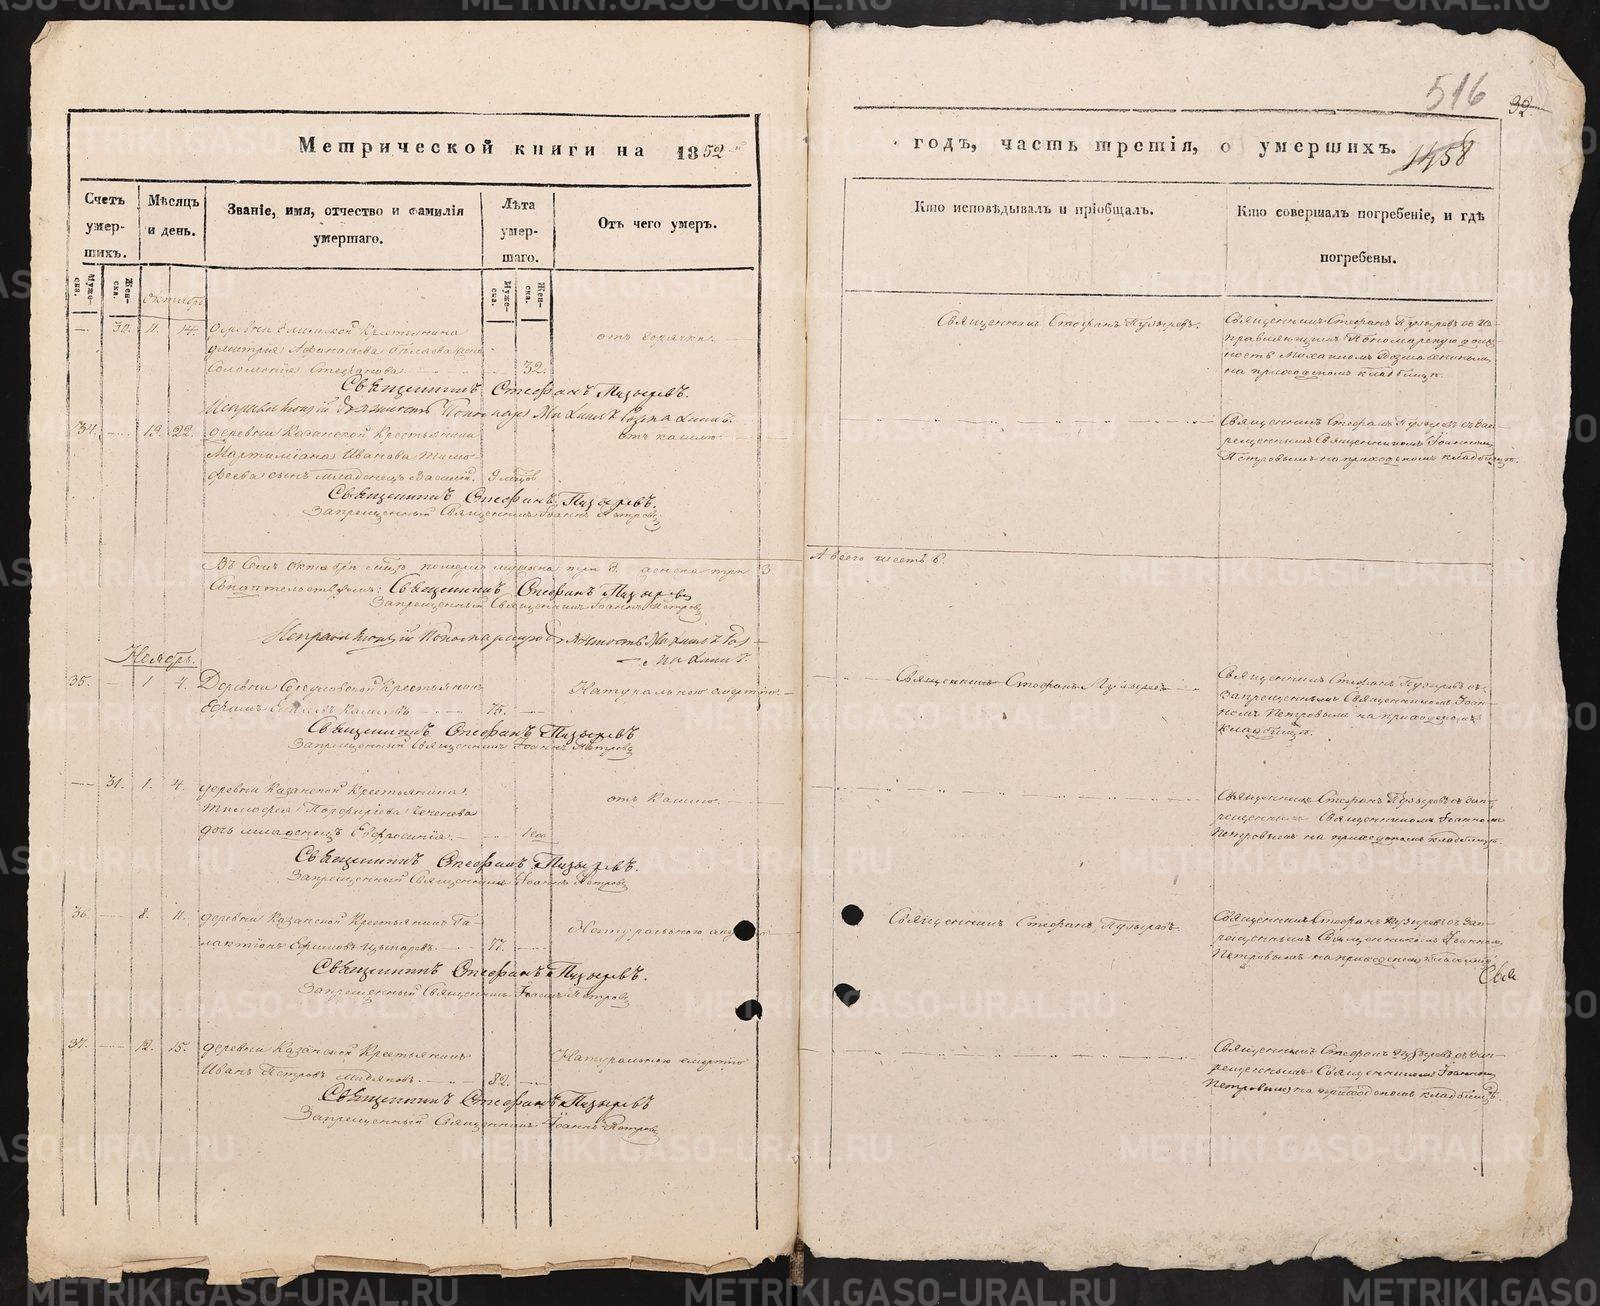 Метрической книги на 1852
Счетъ умер-шихъ.
Мѣсяцъ и день.
Званіе, имя, отчество и фамилія умершаго.
Лѣта умер-шаго.
Отъ чего умер.
Муже-ска.
Жен-ска.
Муже-ска.
Жен-ска.
Октябрь
30. 11. 14. деревни Крестьянина
Дмитрія Афанасьева
Соломонія Стефанова 32.
отъ горячки.
Священникъ Стефанъ Пузыревъ.
Исправляющій должность Пономаря Михаилъ
34. 19. 22. деревни Казанской Крестьянина
Мартиміана Иванова Тимо-
феева сынъ младенецъ Василій. 9 мѣсцов
отъ кашлю.
Священникъ Стефанъ Пузыревъ.
Запрещенный Священникъ Іоаннъ Петровъ
Въ семъ октябрѣ м-цѣ
Священникъ Стефанъ Пузыревъ
Запрещенный Священникъ Іоаннъ Петровъ
Исправляющій Пономарскую должность Михаилъ
Ноябрь.
35. 1. 4. Деревни Крестьянинъ
Ефимъ 75.
Натуральною смертію.
Священникъ Стефанъ Пузыревъ
Запрещенный Священникъ Іоаннъ Петровъ
31. 1. 4. деревни Казанской Крестьянина
Тимофея Порфиріева
дочь младенецъ Евфросинія. 1 год
отъ Кашлю.
Священникъ Стефанъ Пузыревъ.
Запрещенный Священникъ Іоаннъ Петровъ
36. 8. 11. деревни Казанской Крестьянинъ Га-
лактіонъ Ефимовъ 77.
Натуральною
Священникъ Стефанъ Пузыревъ.
Запрещенный Священникъ Іоаннъ Петровъ
37. 12. 15. деревни Казанской Крестьянинъ
Иванъ Петровъ 82.
Натуральною смертію
Священникъ Стефанъ Пузыревъ
Запрещенный Священникъ Іоаннъ Петровъ
516
32
годъ, часть третія, о умершихъ.
1458
Кто исповѣдывалъ и пріобщалъ.
Кто совершалъ погребеніе, и гдѣ
погребены.
Священникъ Стефанъ Пузыревъ.
Священникъ Стефанъ Пузыревъ съ Ис-
правляющимъ Пономарскую долж-
ность Михаиломъ
на приходскомъ кладбищѣ.
Священникъ Стефанъ Пузыревъ съ зап-
рещеннымъ Священникомъ Іоанномъ
Петровымъ на приходскомъ кладбищѣ.
А всего шесть 6.
Священникъ Стефанъ Пузыревъ
Священникъ Стефанъ Пузыревъ съ
запрещеннымъ Священникомъ Іоан-
номъ Петровымъ на приходскомъ
кладбищѣ.
Священникъ Стефанъ Пузыревъ съ зап-
рещеннымъ Священникомъ Іоанномъ
Петровымъ на приходскомъ кладбищѣ.
Священникъ Стефанъ Пузыревъ.
Священникъ Стефанъ Пузыревъ съ зап-
рещеннымъ Священникомъ Іоанномъ
Петровымъ на приходскомъ кладбищѣ
Свя
Священникъ Стефанъ Пузыревъ съ зап-
рещеннымъ Священникомъ Іоанномъ
Петровымъ на приходскомъ кладбищѣ.
METRIKI.GASO-URAL.RU